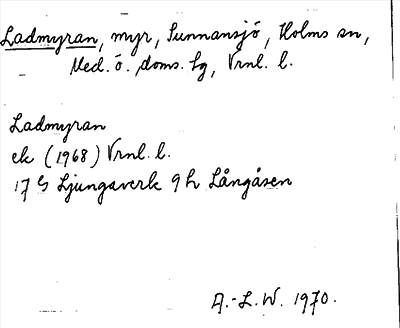 Ladmyran, myr, Sunnansjö, Holms sn,
Med. ö. doms. hg, Vrnl. l.
Ladmyran
ek (1968) Vrnl. l.
17 G Ljungaverk 9 h Långåsen
A.-L.W. 1970.